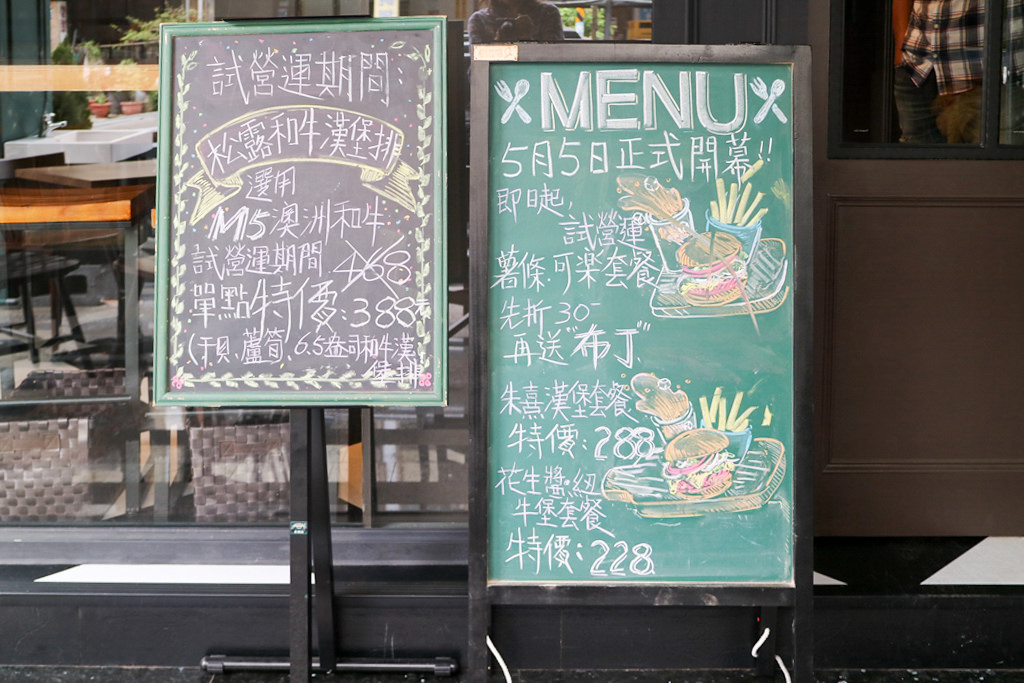 試營運期間:
松露和牛漢堡排
選用
M5澳洲和牛
試營運期間 468
單點特價:388元
(干貝、蘆筍、6.5盎司和牛漢
堡排)
MENU
5月5日正式開幕!!
即日起,
試營運
薯條.可樂套餐
先折30-
再送"布丁"
朱熹漢堡套餐
特價:288
花生醬.紐
牛堡套餐
特價:228